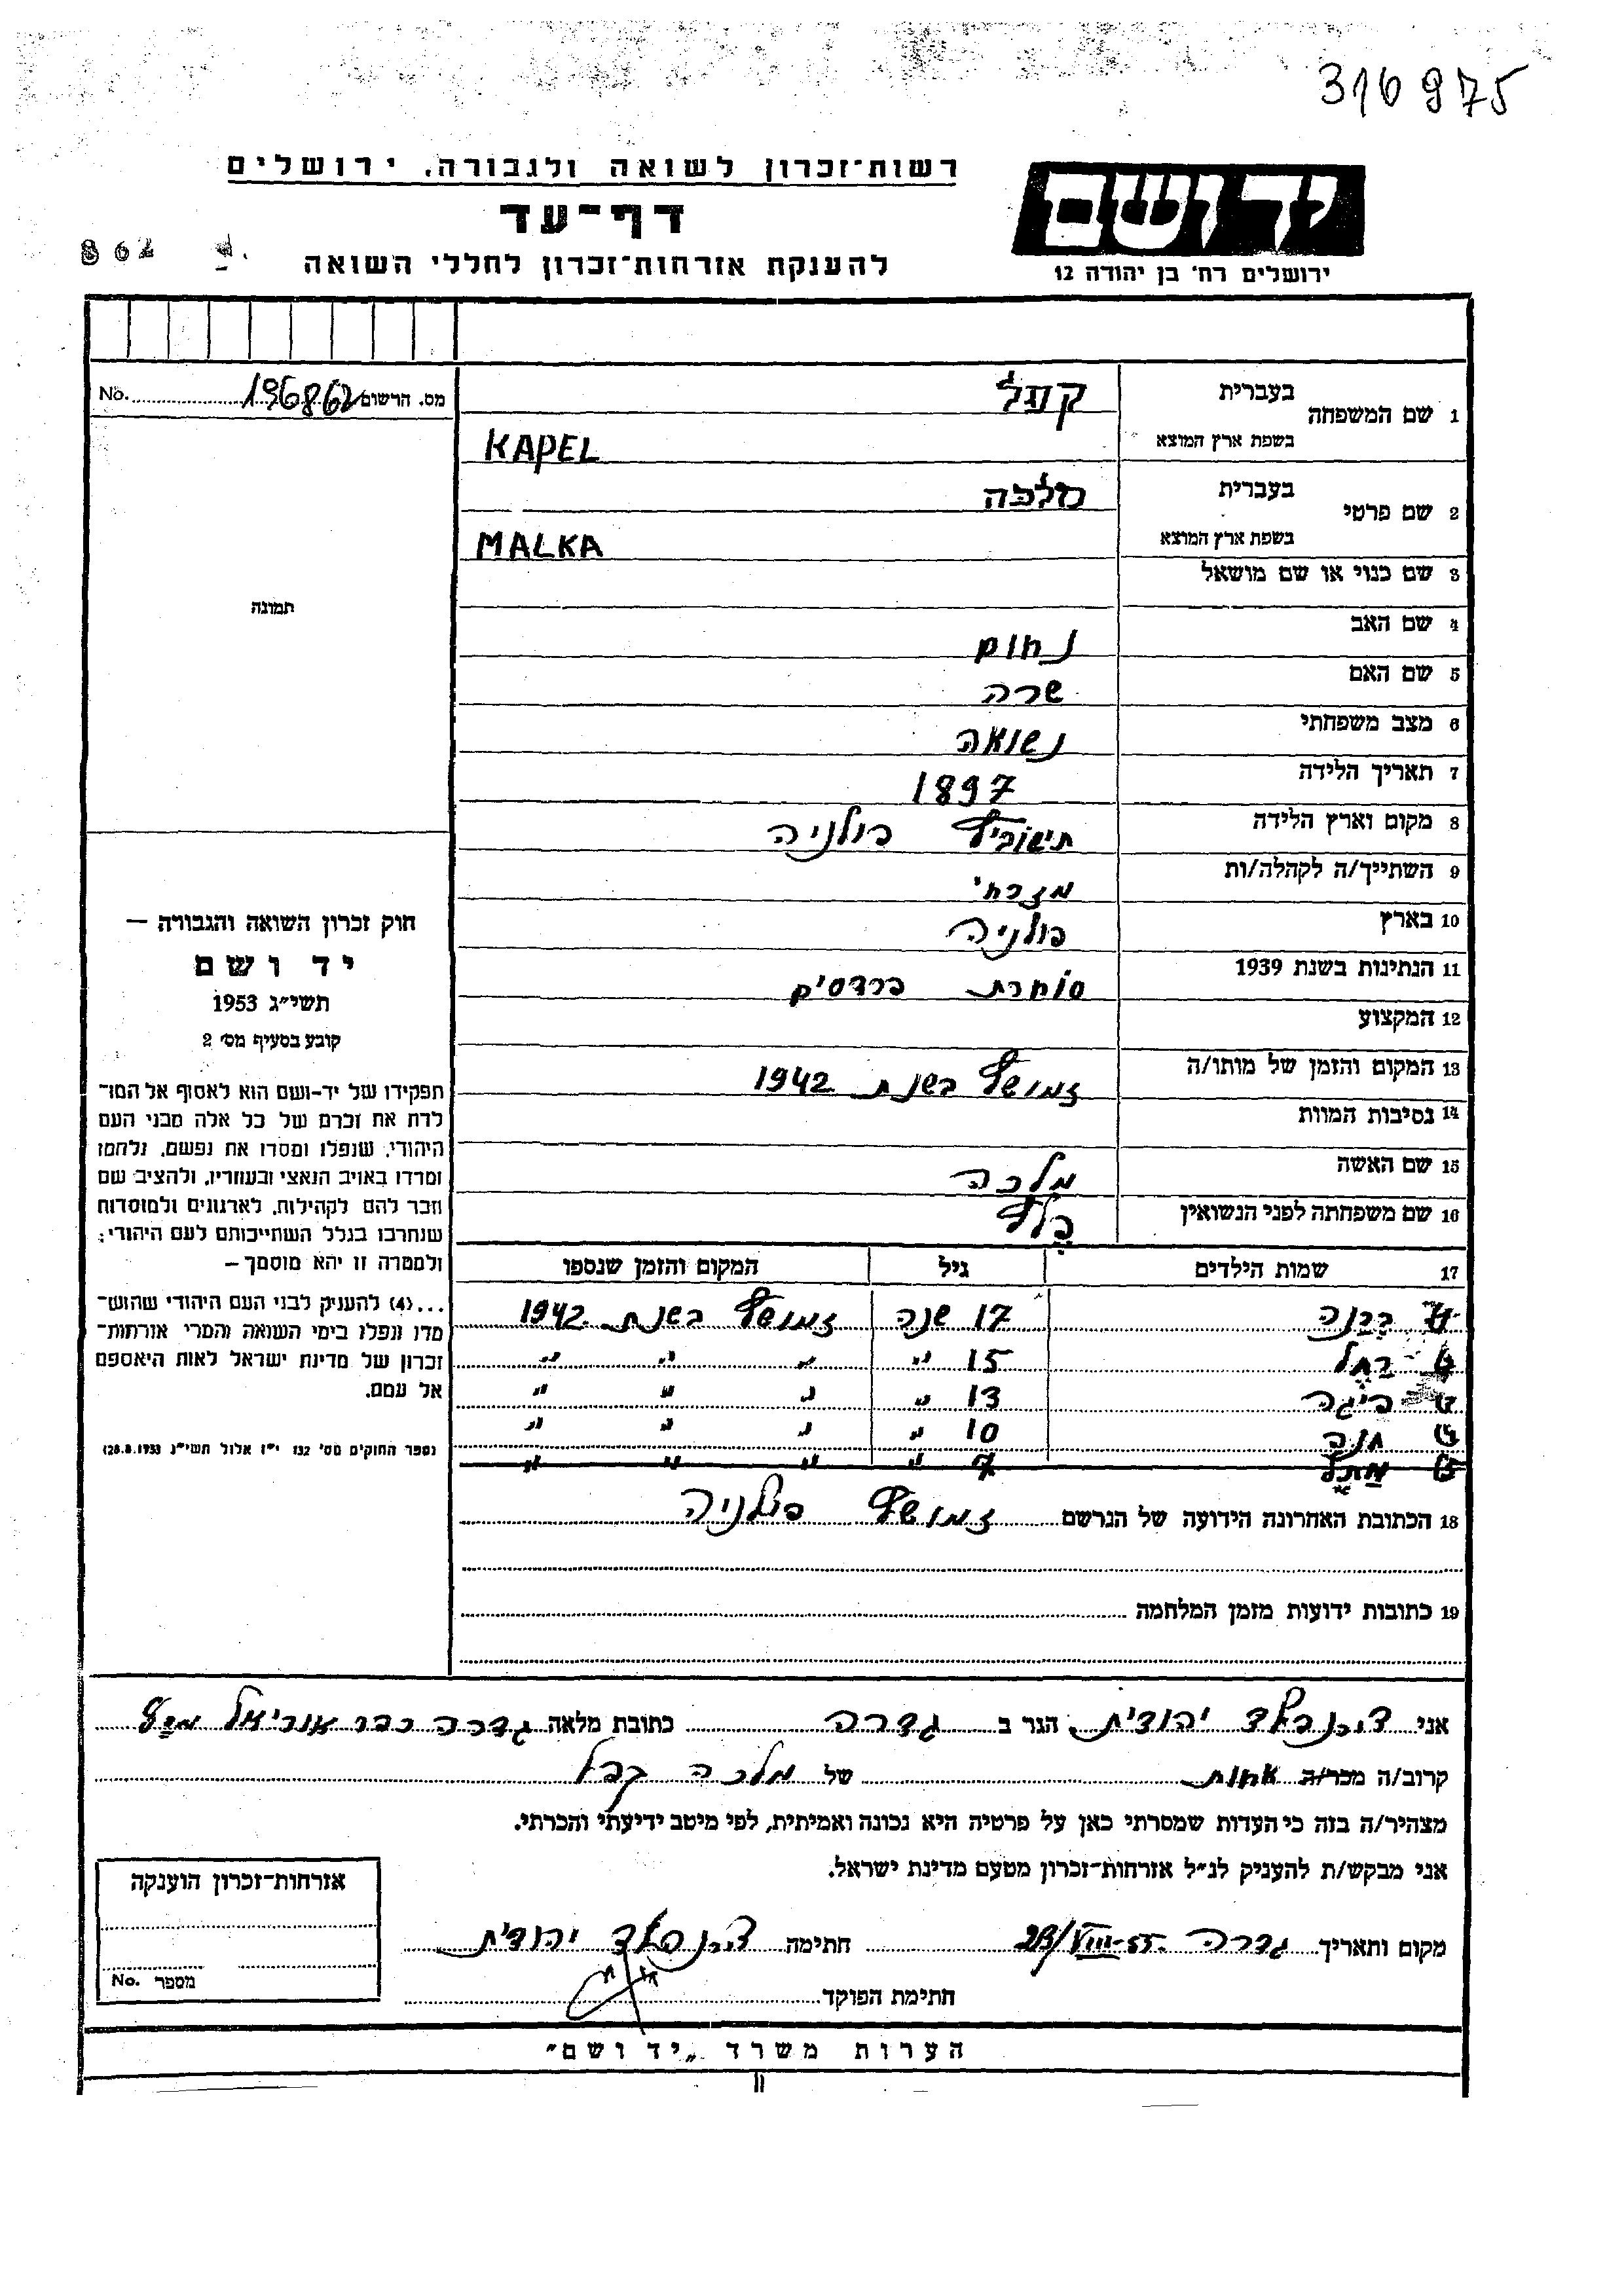 316975
רשות־זכרון לשואה ולגבורה, ירושלים
יד ושם
דף־עד
862
להענקת אזרחות־זכרון לחללי השואה
ירושלים רח' בן יהודה 12
מס. הרשום 196862 No.
1 שם המשפחה
בעברית קפל
בשפת ארץ המוצא KAPEL
2 שם פרטי
בעברית מלכה
בשפת ארץ המוצא MALKA
3 שם כנוי או שם מושאל
4 שם האב נחום
5 שם האם שרה
6 מצב משפחתי נשואה
7 תאריך הלידה 1897
8 מקום וארץ הלידה פולניה
9 השתייך/ה לקהלה/ות מזרחי
10 בארץ פולניה
11 הנתינות בשנת 1939 סוחרת
12 המקצוע
13 המקום והזמן של מותו/ה זמושץ בשנת 1942
14 נסיבות המוות
15 שם האשה מלכה
16 שם משפחתה לפני הנשואין
17 שמות הילדים גיל המקום והזמן שנספו
17 שנה זמושץ בשנת 1942
רחל 15 " " " "
פיגה 13 " " " "
חנה 10 " " " "
7 " " " "
18 הכתובת האחרונה הידועה של הנרשם זמושץ פולניה
19 כתובות ידועות מזמן המלחמה
תמונה
חוק זכרון השואה והגבורה –
יד ושם
תשי״ג 1953
קובע בסעיף מס׳ 2
תפקידו של יד-ושם הוא לאסוף אל המו־
לדת את זכרם של כל אלה מבני העם
היהודי, שנפלו ומסרו את נפשם, נלחמו
ומרדו באויב הנאצי ובעוזריו, ולהציב שם
וזכר להם לקהילות, לארגונים ולמוסדות
שנחרבו בגלל השתייכותם לעם היהודי;
ולמטרה זו יהא מוסמך –
...(4) להעניק לבני העם היהודי שהוש־
מדו ונפלו בימי השואה והמרי אזרחות־
זכרון של מדינת ישראל לאות היאספם
אל עמם.
(ספר החוקים מס׳ 132 י״ז אלול תשי״ג 28.8.1953)
אני יהודית הגר ב גדרה כתובת מלאה גדרה כפר אוריאל
קרוב/ה מכר/ה אחות של מלכה קפל
מצהיר/ה בזה כי העדות שמסרתי כאן על פרטיה היא נכונה ואמיתית, לפי מיטב ידיעתי והכרתי.
אני מבקש/ת להעניק לנ״ל אזרחות־זכרון מטעם מדינת ישראל.
מקום ותאריך גדרה 23/VIII-55 חתימה יהודית
חתימת הפוקד
אזרחות־זכרון הוענקה
מספר No.
הערות משרד „יד ושם"